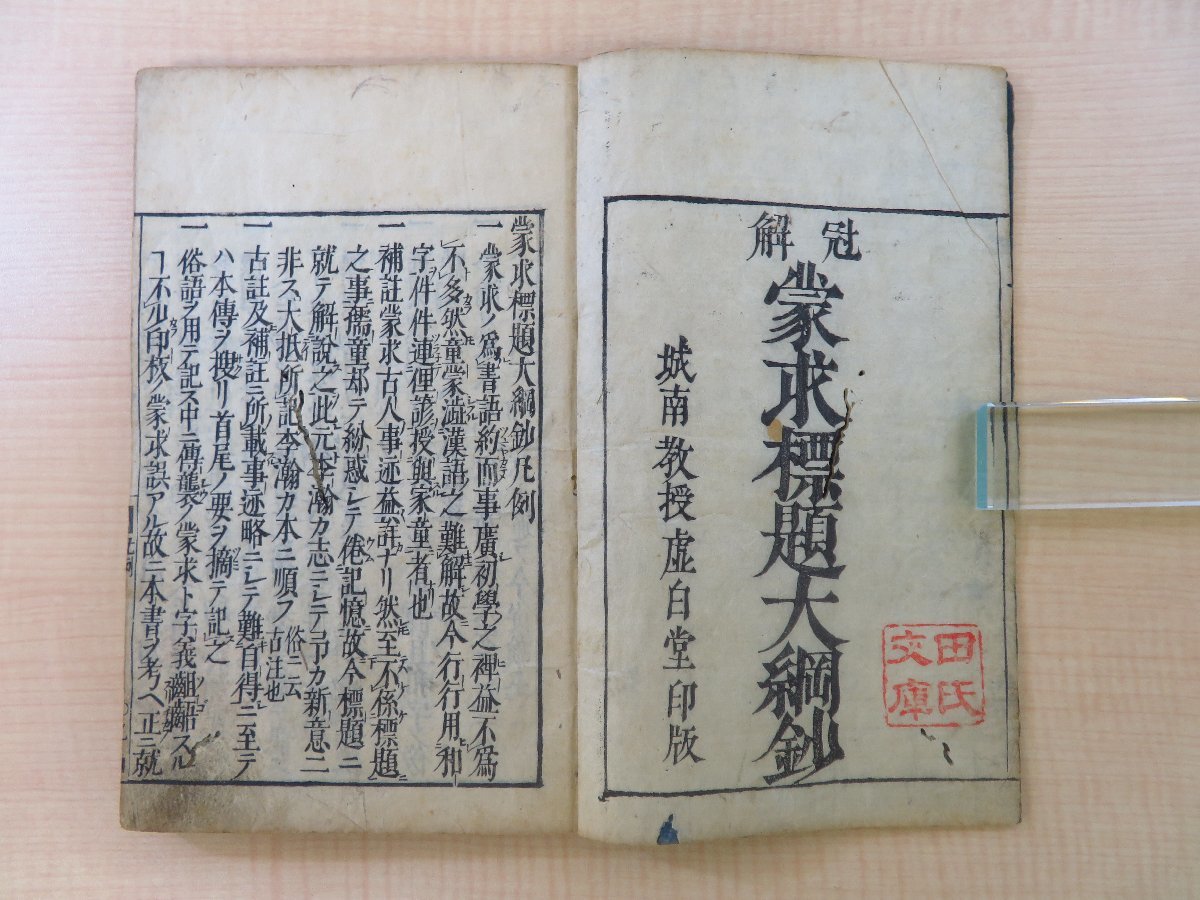 冠解
蒙求標題大綱鈔
城南教授虚白堂印版
田氏
文庫
蒙求標題大綱鈔凡例
一蒙求ノ為書語約而事廣初學之裨益不為
不多然童蒙澁漢語之難解故今行行用和
字件件連俚諺授與家童者也
一補註蒙求古人事迹益詳ナリ然至不係標題
之事儒童却テ紛惑シテ倦記憶故今標題ニ
就テ解説之此元李瀚カ志ニシテ予カ新意ニ
非ス大抵所記李瀚カ本ニ順フ俗ニ云古注也
一古註及補註ニ所載事迹略ニシテ難自得ニ至テ
ハ本傳ヲ捜リ首尾ノ要ヲ摘テ記之
一俗語ヲ用テ記ス中ニ傳襲ノ蒙求ト字義齟齬スル
ヿ不少印板ノ蒙求誤アル故ニ本書ヲ考ヘ正ニ就